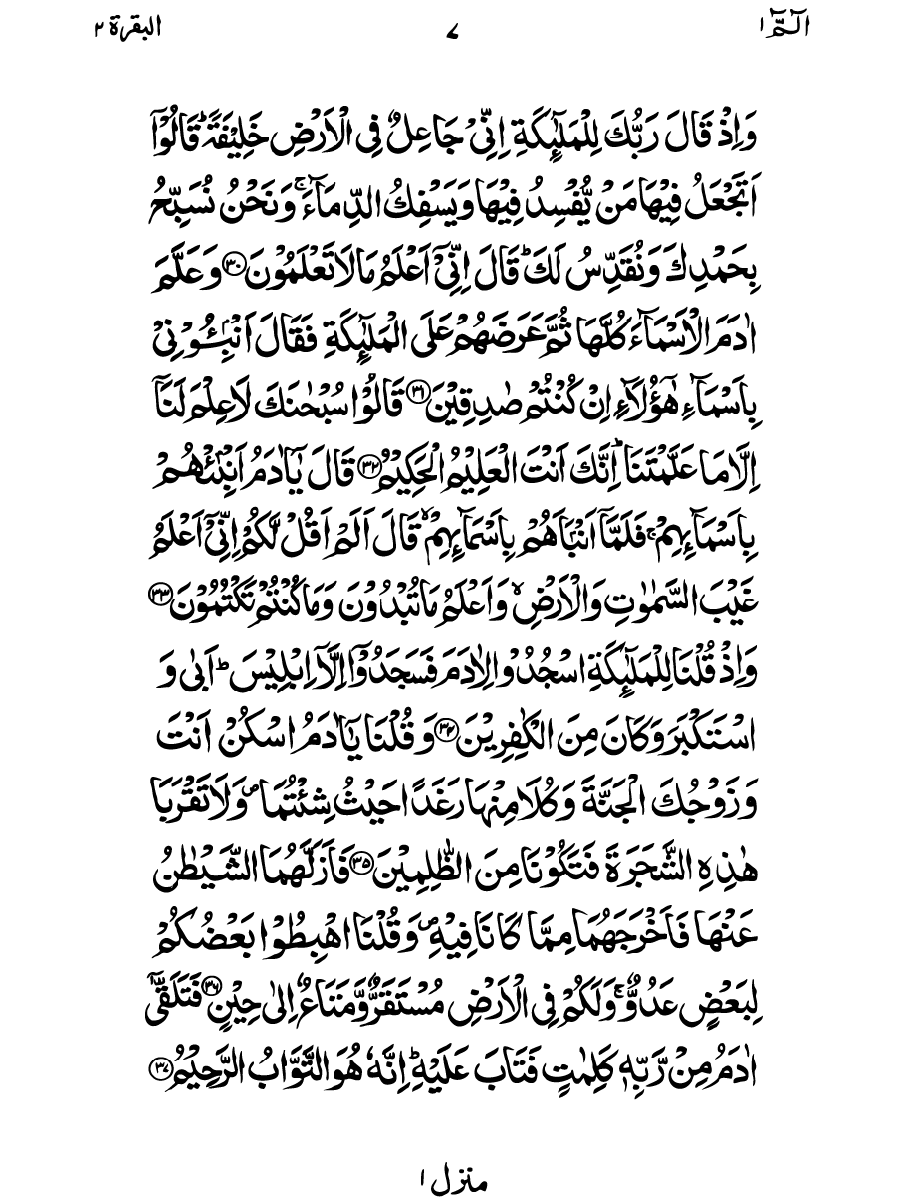 الٓمّٓ ۱
۷
البقرة ۲
وَاِذْ قَالَ رَبُّكَ لِلْمَلٰٓئِكَةِ اِنِّیْ جَاعِلٌ فِی الْاَرْضِ خَلِیْفَةً ؕ قَالُوْۤا
اَتَجْعَلُ فِیْهَا مَنْ یُّفْسِدُ فِیْهَا وَیَسْفِكُ الدِّمَآءَ ۚ وَنَحْنُ نُسَبِّحُ
بِحَمْدِكَ وَنُقَدِّسُ لَكَ ؕ قَالَ اِنِّیْۤ اَعْلَمُ مَا لَا تَعْلَمُوْنَ ﴿۳۰﴾ وَعَلَّمَ
اٰدَمَ الْاَسْمَآءَ كُلَّهَا ثُمَّ عَرَضَهُمْ عَلَی الْمَلٰٓئِكَةِ فَقَالَ اَنْۢبِـُٔوْنِیْ
بِاَسْمَآءِ هٰۤؤُلَآءِ اِنْ كُنْتُمْ صٰدِقِیْنَ ﴿۳۱﴾ قَالُوْا سُبْحٰنَكَ لَا عِلْمَ لَنَاۤ
اِلَّا مَا عَلَّمْتَنَا ؕ اِنَّكَ اَنْتَ الْعَلِیْمُ الْحَكِیْمُ ﴿۳۲﴾ قَالَ یٰۤاٰدَمُ اَنْۢبِئْهُمْ
بِاَسْمَآئِهِمْ ۚ فَلَمَّاۤ اَنْۢبَاَهُمْ بِاَسْمَآئِهِمْ ۙ قَالَ اَلَمْ اَقُلْ لَّكُمْ اِنِّیْۤ اَعْلَمُ
غَیْبَ السَّمٰوٰتِ وَالْاَرْضِ ۙ وَاَعْلَمُ مَا تُبْدُوْنَ وَمَا كُنْتُمْ تَكْتُمُوْنَ ﴿۳۳﴾
وَاِذْ قُلْنَا لِلْمَلٰٓئِكَةِ اسْجُدُوْا لِاٰدَمَ فَسَجَدُوْۤا اِلَّاۤ اِبْلِیْسَ ؕ اَبٰی وَ
اسْتَكْبَرَ وَكَانَ مِنَ الْكٰفِرِیْنَ ﴿۳۴﴾ وَقُلْنَا یٰۤاٰدَمُ اسْكُنْ اَنْتَ
وَزَوْجُكَ الْجَنَّةَ وَكُلَا مِنْهَا رَغَدًا حَیْثُ شِئْتُمَا ۪ وَلَا تَقْرَبَا
هٰذِهِ الشَّجَرَةَ فَتَكُوْنَا مِنَ الظّٰلِمِیْنَ ﴿۳۵﴾ فَاَزَلَّهُمَا الشَّیْطٰنُ
عَنْهَا فَاَخْرَجَهُمَا مِمَّا كَانَا فِیْهِ ۪ وَقُلْنَا اهْبِطُوْا بَعْضُكُمْ
لِبَعْضٍ عَدُوٌّ ۚ وَلَكُمْ فِی الْاَرْضِ مُسْتَقَرٌّ وَّمَتَاعٌ اِلٰی حِیْنٍ ﴿۳۶﴾ فَتَلَقّٰۤی
اٰدَمُ مِنْ رَّبِّهٖ كَلِمٰتٍ فَتَابَ عَلَیْهِ ؕ اِنَّهٗ هُوَ التَّوَّابُ الرَّحِیْمُ ﴿۳۷﴾
منزل ۱